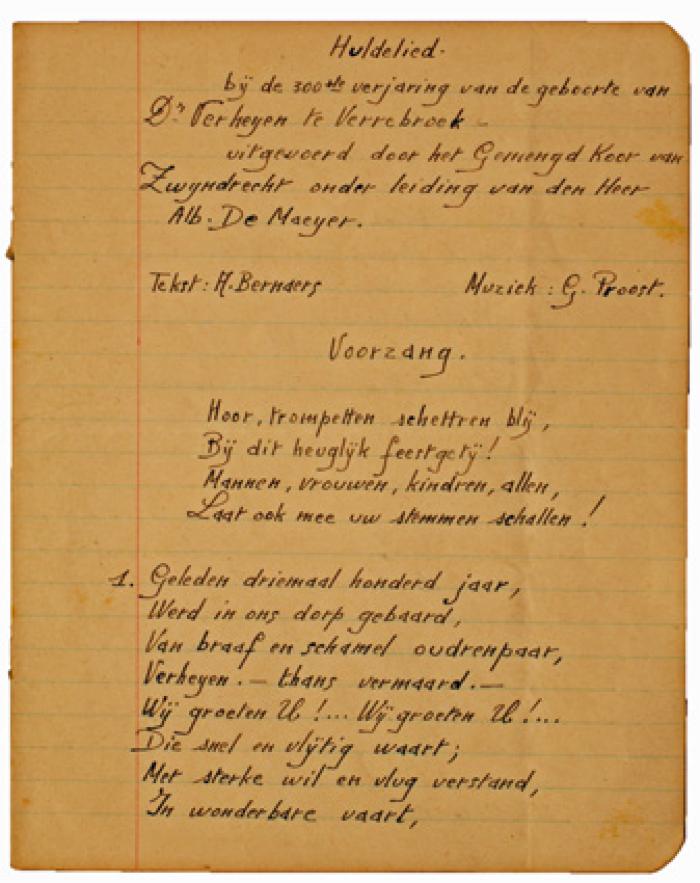 Huldelied.
bij de 300ste verjaring van de geboorte van
Dr Verheyen te Verrebroek -
uitgevoerd door het Gemengd Koor van
Zwyndrecht onder leiding van den Heer
Alb. De Maeyer.
Tekst: A. Bernaers Muziek : G. Proost.
Voorzang.
Hoor, trompetten schettren blij,
Bij dit heuglijk feestgetij!
Mannen, vrouwen, kindren, allen,
Laat ook mee uw stemmen schallen!
1. Geleden driemaal honderd jaar,
Werd in ons dorp gebaard,
Van braaf en schamel oudrenpaar,
Verheyen. — thans vermaard. —
Wij groeten U!... Wij groeten U!...
Die snel en vlijtig waart;
Met sterke wil en vlug verstand,
In wonderbare vaart,